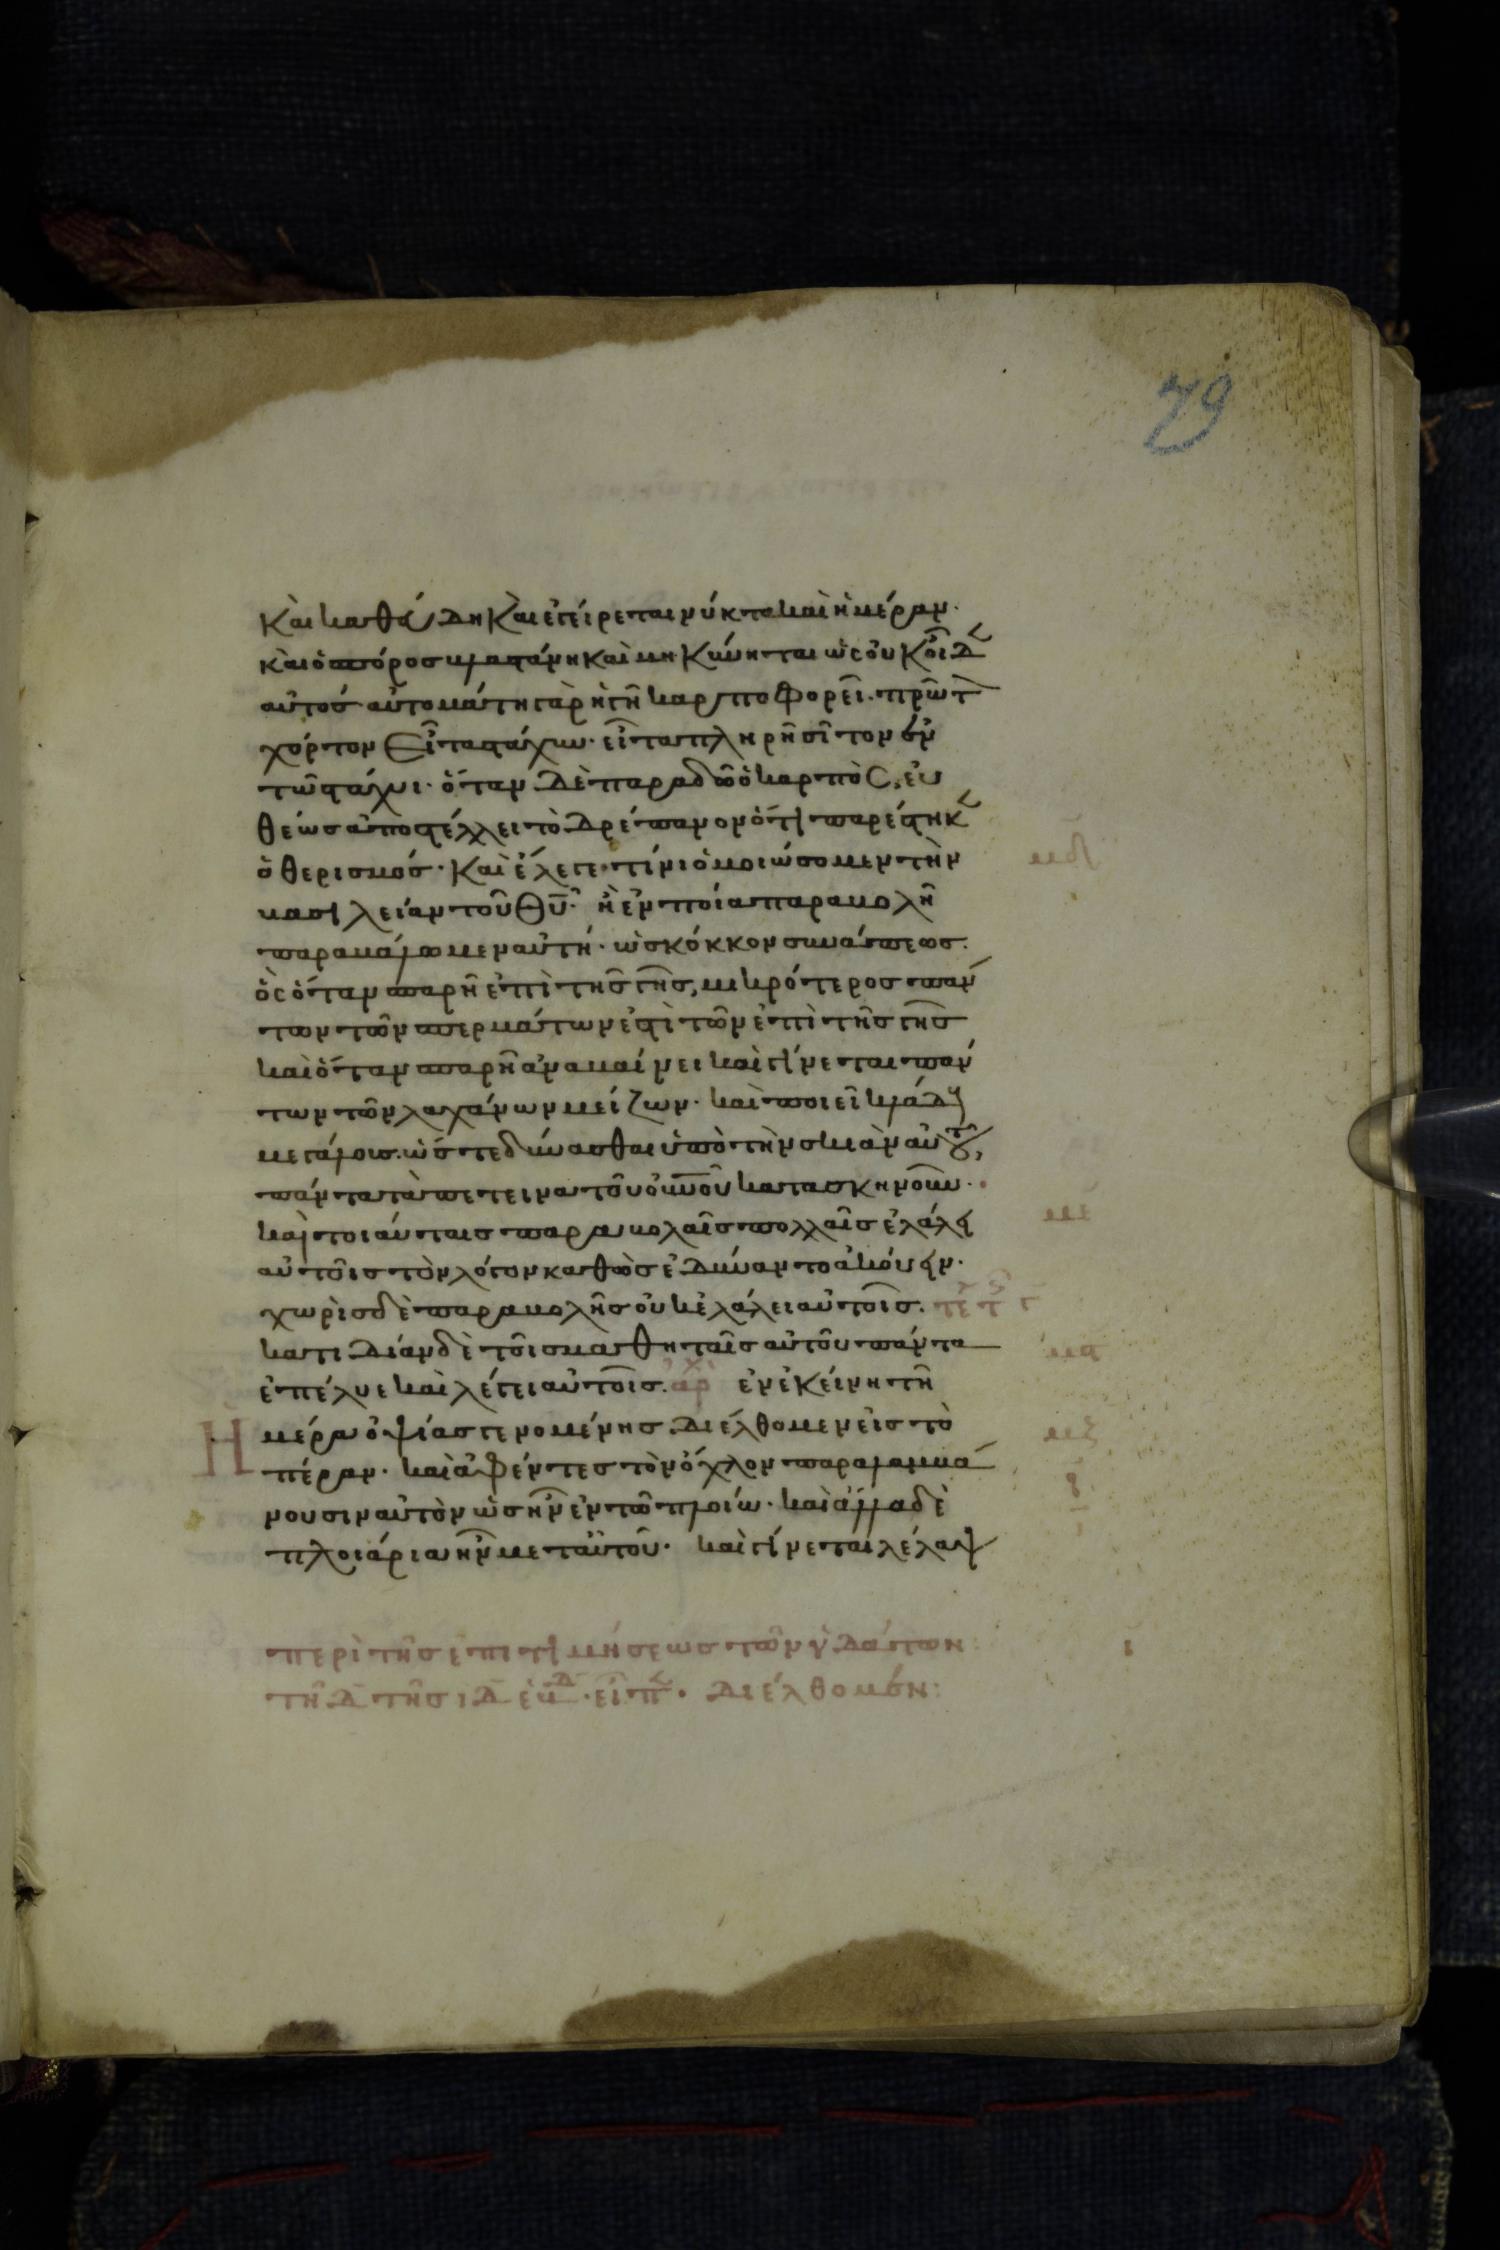 79
Καὶ καθεύδη Καὶ ἐγείρεται νύκτα καὶ ἡμέραν·
καὶ ὁ σπόρος βλαστάνη καὶ μηκύνηται ὡς οὐκ οἶδ
αὐτός· αὐτομάτη γὰρ ἡ γῆ καρποφορεῖ· πρῶτ
χόρτον εἶτα στάχυν· εἶτα πλήρη σῖτον ἐν
τῶ στάχυι· ὅταν δὲ παραδῶ ὁ καρπὸς, εὐ
θέως ἀποστέλλει τὸ δρέπανον ὅτι παρέστηκ
ὁ θερισμός· Καὶ ἔλεγε· τίνι ὁμοιώσομεν τὴν
βασιλείαν τοῦ θῦ· ἢ ἐν ποία παραβολῆ
παραβάλωμεν αὐτή· ὡς κόκκον σινάπεως·
ὃς ὅταν σπαρῆ ἐπὶ τῆς γῆς, μικρότερος πάν
των τῶν σπερμάτων ἐστὶ τῶν ἐπὶ τῆς γῆς
καὶ ὅταν σπαρῆ ἀναβαίνει καὶ γίνεται πάν
των τῶν λαχάνων μείζων· καὶ ποιεῖ κλάδ
μεγάλους· ὥστε δύνασθαι ὑπὸ τὴν σκιὰν αὐτοῦ,
πάντα τὰ πετεινὰ τοῦ οὐνοῦ κατασκηνοῦν·
καὶ τοιαύταις παραβολαῖς πολλαῖς ἐλάλει
αὐτοῖς τὸν λόγον καθὼς ἐδύναντο ἀκούειν·
χωρὶς δὲ παραβολῆς οὐκ ἐλάλει αὐτοῖς·
κατιδίαν δὲ τοῖς μαθηταῖς αὐτοῦ πάντα
ἐπέλυε καὶ λέγει αὐτοῖς· ἀρχ ἐν ἐκείνη τῆ
Ἡμέρα ὀψίας γενομένης διέλθομεν εἰς τὸ
πέραν· καὶ ἀφέντες τὸν ὄχλον παραλαμβά
νουσιν αὐτὸν ὡς ἦν ἐν τῶ πλοίω· καὶ ἄλλα δὲ
πλοιάρια ἦν μεταὐτοῦ· καὶ γίνεται λέλαψ
περὶ τῆς ἐπιτιμήσεως τῶν ὑδάτων
τῆ δ τῆς ιδ ἑβδ· εἶπ· διέλθομεν: